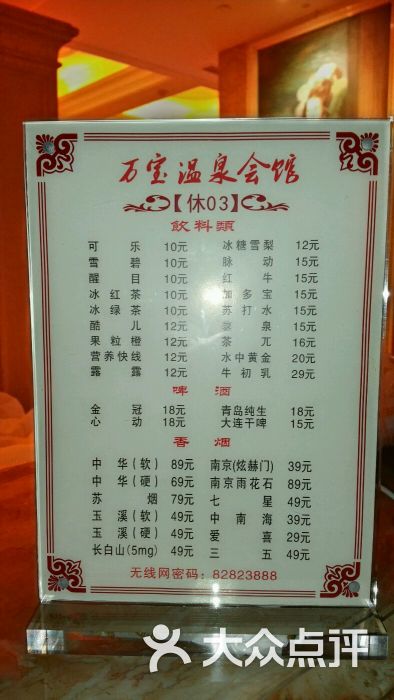 万宝温泉会馆
【休03】
飲料類
可乐 10元 冰糖雪梨 12元
雪碧 10元 脉动 15元
醒目 10元 红牛 15元
冰红茶 10元 加多宝 15元
冰绿茶 10元 苏打水 15元
酷儿 12元 泉 15元
果粒橙 12元 茶兀 16元
营养快线 12元 水中黄金 20元
露露 12元 牛初乳 29元
啤酒
金冠 18元 青岛纯生 18元
心动 18元 大连干啤 15元
香烟
中华(软) 89元 南京(炫赫门) 39元
中华(硬) 69元 南京雨花石 89元
苏烟 79元 七星 49元
玉溪(软) 49元 中南海 39元
玉溪(硬) 49元 爱喜 29元
长白山(5mg) 49元 三五 49元
无线网密码：82823888
大众点评